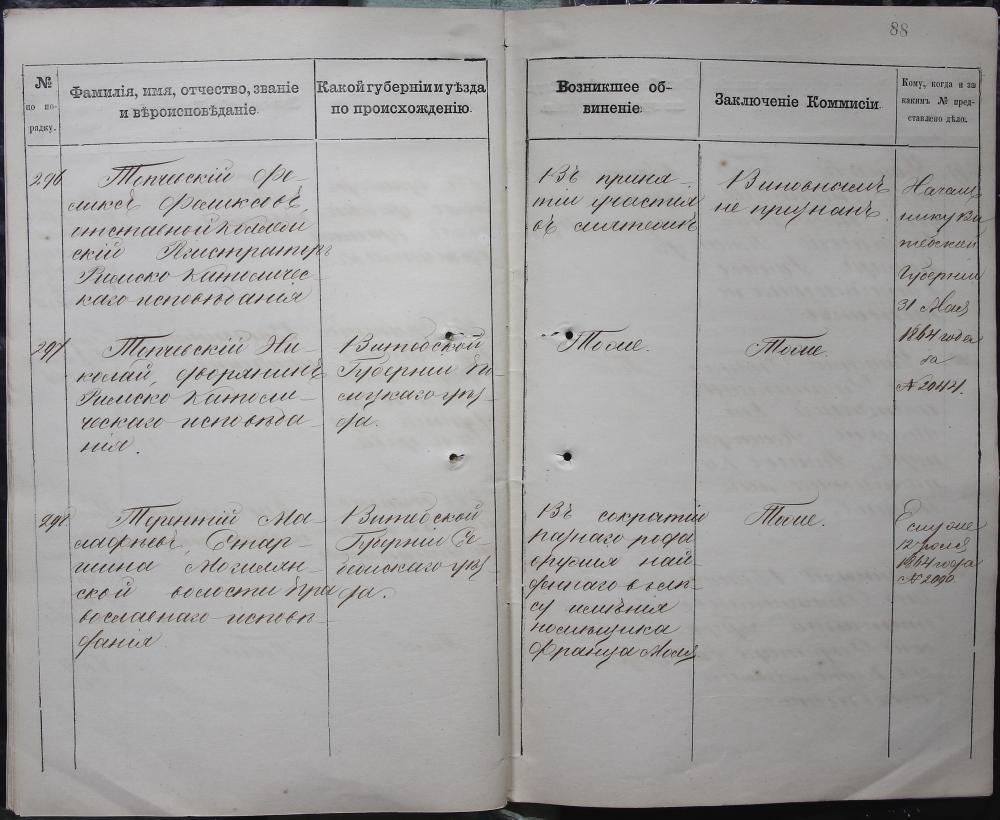 88
№ по по-рядку.
Фамилія, имя, отчество, званіе
и вѣроисповѣданіе.
Какой губерніи и уѣзда
по происхожденію.
Возникшее об-
виненіе:
Заключеніе Коммисіи.
Кому, когда и за
какимъ № пред-
ставлено дѣло.
296
Топчевскій Фе-
ликсъ
отставной Коллеж
скій Регистраторъ
Римско Католичес-
каго исповѣданія
Въ приня-
тіи участія
въ мятежѣ
Виновнымъ
не признанъ.
Началь
нику Ви
тебской
Губерніи
31 Мая
1864 года
за
№ 2044.
297
Топчевскій Ни-
колай, дворянинъ
Римско Католи-
ческаго исповѣда-
нія.
Витебской
Губерніи
уѣз-
да.
Тоже.
Тоже.
298
Терентій Ма-
Стар-
шина
ской волости Пра
вославнаго исповѣ-
данія
Витебской
Губерніи Се-
бежскаго уѣз-
да.
Въ сокрытіи
разнаго рода
оружія най-
деннаго в лѣ-
су имѣнія
помѣщика
Франца
Тоже.
Ему же
12
1864 года
№ 2090